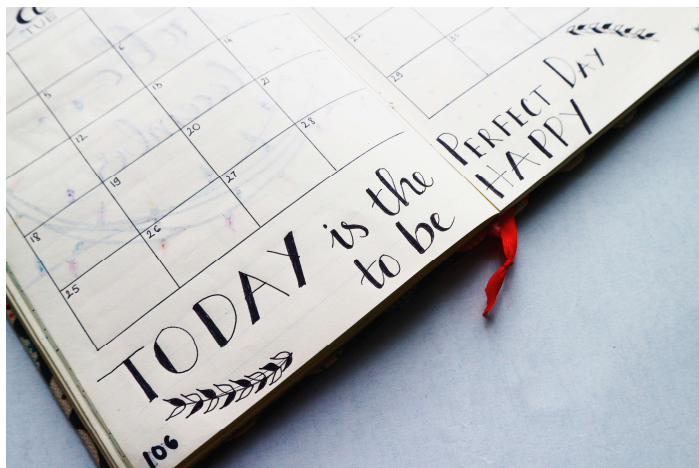 TUE
5 6
12 13 14
18 19 20 21
25 26 27 28
22
29 30
TODAY is the PERFECT DAY
to be HAPPY
106